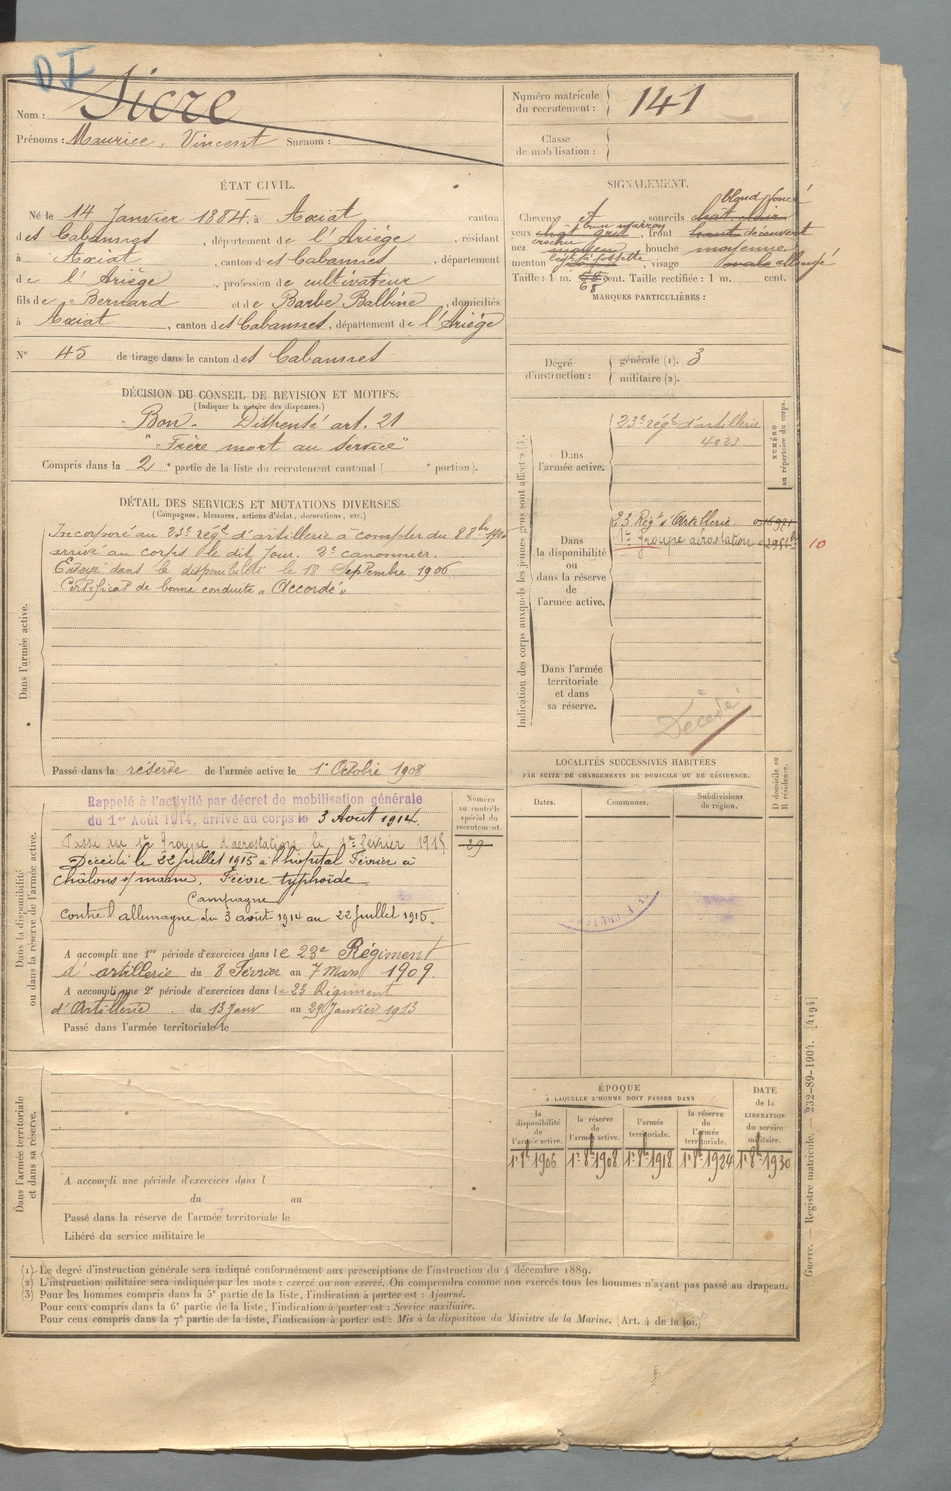 DI
Nom : Sicre
Prénoms : Maurice, Vincent Surnom :
Numéro matricule du recrutement : 141
Classe de mobilisation :
ÉTAT CIVIL.
Né le 14 Janvier 1884, à Axiat canton
des Cabannes, département de l'Ariège, résidant
à Axiat, canton des Cabannes, département
de l'Ariège, profession de cultivateur
fils de Bernard et de Barbe Balbine, domiciliés
à Axiat, canton des Cabannes, département de l'Ariège
N° 45 de tirage dans le canton des Cabannes
DÉCISION DU CONSEIL DE REVISION ET MOTIFS.
(Indiquer la nature des dispenses.)
Bon - Dispensé art. 21
"Frère mort au service"
Compris dans la 2e partie de la liste du recrutement cantonal ( e portion).
DÉTAIL DES SERVICES ET MUTATIONS DIVERSES.
(Campagnes, blessures, actions d'éclat, décorations, etc.)
Dans l'armée active.
Incorporé au 23e régt d'artillerie à compter du 8 8bre 1905
arrivé au corps le dit jour. 2e canonnier.
Envoyé dans la disponibilité le 18 Septembre 1906
Certificat de bonne conduite "Accordé"
Passé dans la réserve de l'armée active le 1er Octobre 1908
Dans la disponibilité ou dans la réserve de l'armée active.
Rappelé à l'activité par décret de mobilisation générale
du 1er Août 1914, arrivé au corps le 3 Août 1914.
Passé au 1er Groupe d'aérostation le 1er février 1915
Décédé le 22 Juillet 1915 à l'hôpital Février à
Châlons s/marne. Fièvre typhoïde
Campagne
Contre l'allemagne du 3 août 1914 au 22 Juillet 1915.
A accompli une 1re période d'exercices dans le 23e Régiment
d'artillerie du 8 Février au 7 Mars 1909.
A accompli une 2e période d'exercices dans le 23 Régiment
d'Artillerie du 13 Janv au 29 Janvier 1913
Passé dans l'armée territoriale le
Numéro au contrôle spécial du recrutement.
29
Dans l'armée territoriale et dans sa réserve.
A accompli une période d'exercices dans l
du au
Passé dans la réserve de l'armée territoriale le
Libéré du service militaire le
SIGNALEMENT.
blond foncé
Cheveux et sourcils chat. clair
brun marron
yeux chat gris, front haut découvert
crochu
nez moyen, bouche moyenne
menton à fossette, visage ovale allongé
Taille : 1 m. cent. Taille rectifiée : 1 m. cent.
68
MARQUES PARTICULIÈRES :
Degré d'instruction : générale (1). 3
militaire (2).
Indication des corps auxquels les jeunes gens sont affectés (3).
NUMÉRO au répertoire du corps.
Dans l'armée active.
23e régt d'artillerie
4023
Dans la disponibilité ou dans la réserve de l'armée active.
23 Régt d'Artillerie
1er groupe aérostation
10
Dans l'armée territoriale et dans sa réserve.
Décédé
LOCALITÉS SUCCESSIVES HABITÉES
PAR SUITE DE CHANGEMENTS DE DOMICILE OU DE RÉSIDENCE.
Dates. Communes. Subdivisions de région.
D domicile ou R résidence.
ÉPOQUE
À LAQUELLE L'HOMME DOIT PASSER DANS
la disponibilité de l'armée active. la réserve de l'armée active. l'armée territoriale. la réserve de l'armée territoriale.
DATE de la LIBÉRATION du service militaire.
1r 8bre 1906 1r 8bre 1908 1r 8bre 1918 1r 8bre 1924 1r 8bre 1930
(1) Le degré d'instruction générale sera indiqué conformément aux prescriptions de l'instruction du 4 décembre 1889.
(2) L'instruction militaire sera indiquée par les mots : exercé ou non exercé. On comprendra comme non exercés tous les hommes n'ayant pas passé au drapeau.
(3) Pour les hommes compris dans la 5e partie de la liste, l'indication à porter est : Ajourné.
Pour ceux compris dans la 6e partie de la liste, l'indication à porter est : Service auxiliaire.
Pour ceux compris dans la 7e partie de la liste, l'indication à porter est : Mis à la disposition du Ministre de la Marine. (Art. 4 de la loi.)
Guerre. — Registre matricule. — 232-89-1904. [4194]